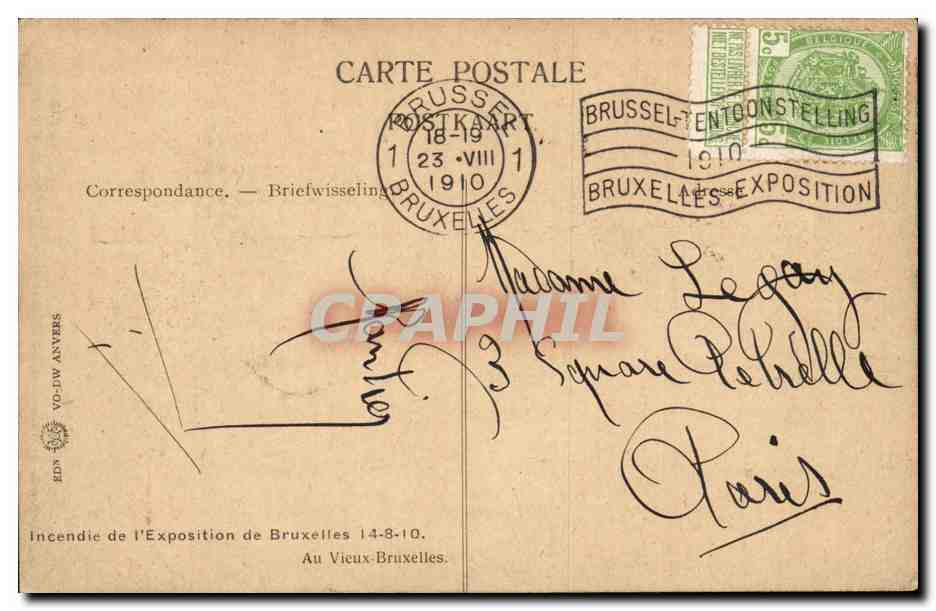 CARTE POSTALE
POSTKAART
Correspondance. — Briefwisseling
Adresse
BRUSSEL
18-19
1 23 · VIII 1
1910
BRUXELLES
BRUSSEL-TENTOONSTELLING
1910
BRUXELLES-EXPOSITION
BELGIQUE
5c
NE PAS LIVRER
NIET BESTELLEN
Madame Legay
3 Square Pétrelle
Paris
CRAPHIL
EDN VO-DW ANVERS
Incendie de l'Exposition de Bruxelles 14-8-10.
Au Vieux-Bruxelles.